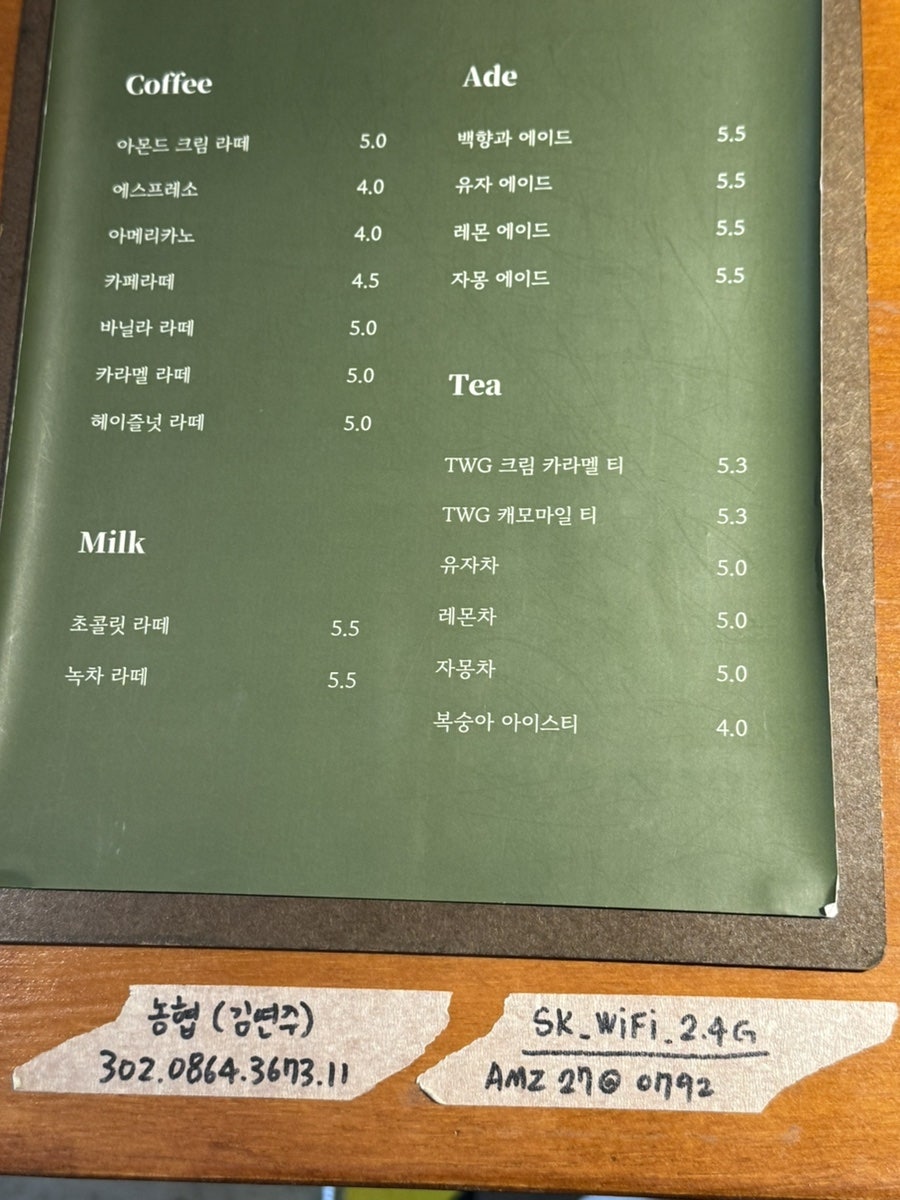 Coffee
아몬드 크림 라떼 5.0
에스프레소 4.0
아메리카노 4.0
카페라떼 4.5
바닐라 라떼 5.0
카라멜 라떼 5.0
헤이즐넛 라떼 5.0
Milk
초콜릿 라떼 5.5
녹차 라떼 5.5
Ade
백향과 에이드 5.5
유자 에이드 5.5
레몬 에이드 5.5
자몽 에이드 5.5
Tea
TWG 크림 카라멜 티 5.3
TWG 캐모마일 티 5.3
유자차 5.0
레몬차 5.0
자몽차 5.0
복숭아 아이스티 4.0
농협 (김연주)
302.0864.3673.11
SK_WiFi_2.4G
AMZ 27@ 0792